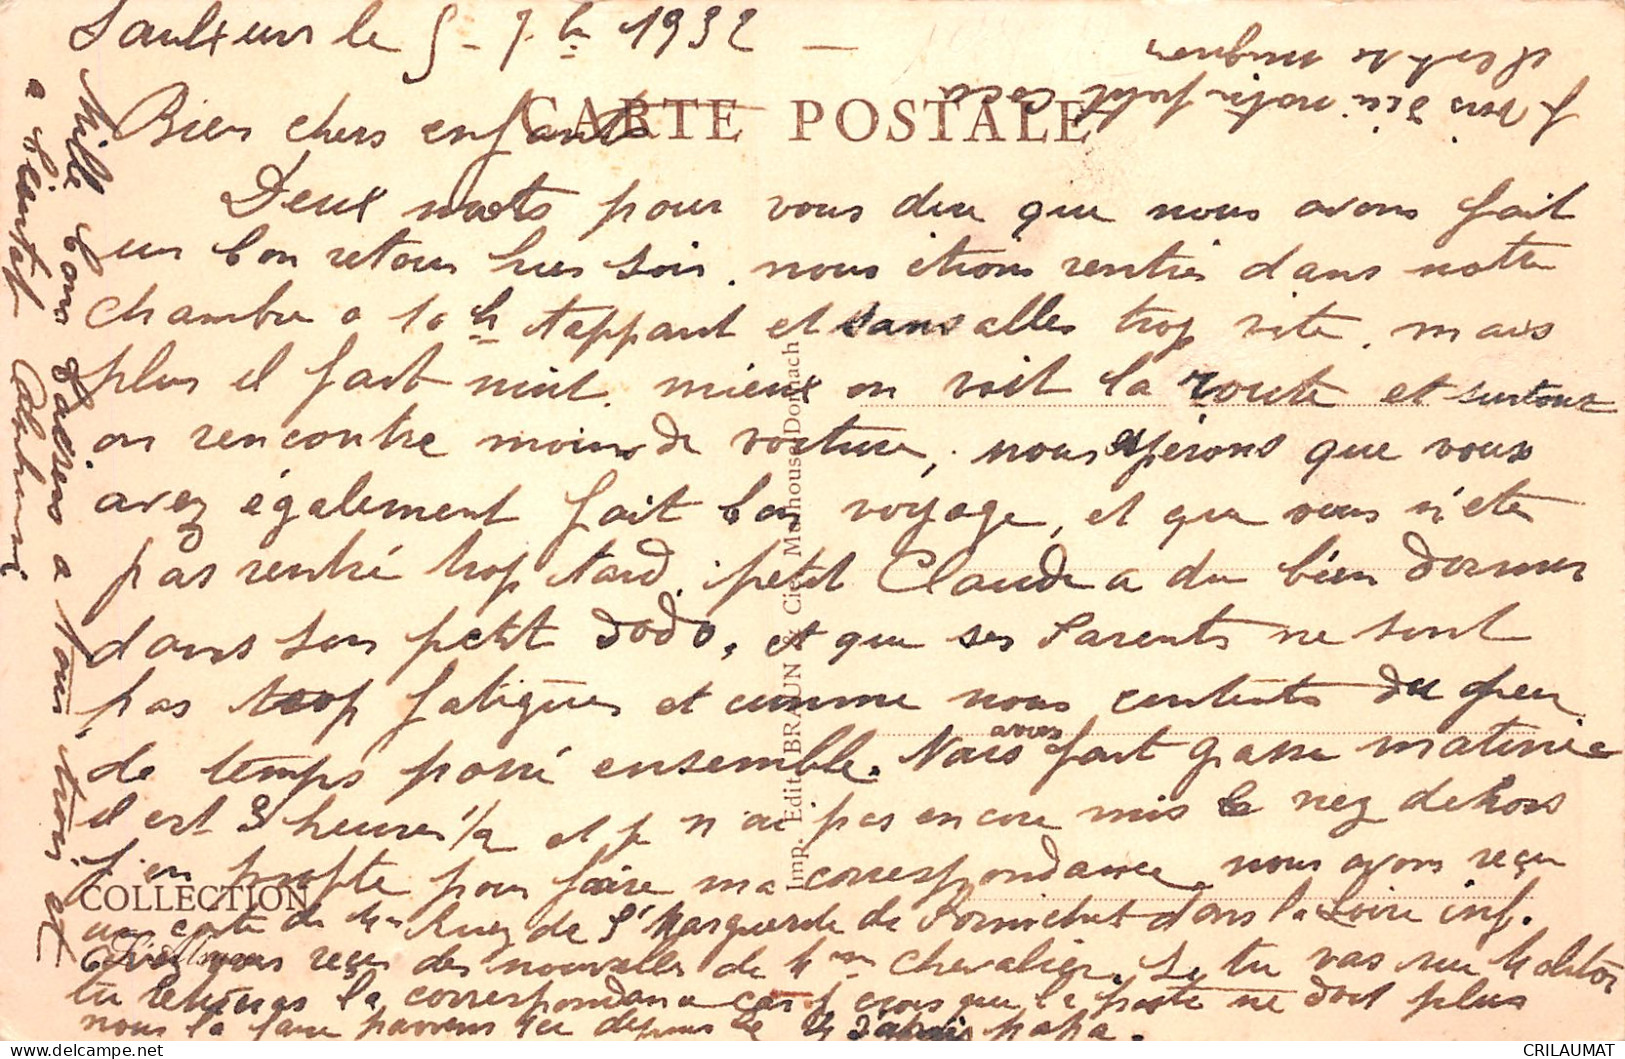 le 5 - 7bre 1932
CARTE POSTALE
Bien chers enfants
Deux mots pour vous dire que nous avons fait
un bon retour hier soir. nous étions rentrés dans notre
chambre a 10 h tappant et sans aller trop vite. mais
plus il fait nuit mieux on voit la route et surtout
on rencontre moins de voiture, nous espérons que vous
avez également fait bon voyage, et que vous n'etes
pas rentré trop tard. petit Claude a du bien dormir
dans son petit dodo, et que ses Parents ne sont
pas trop fatigués et comme nous contents du peu
de temps passé ensemble. Nous avons fait grasse matinée
il est 3 heures 1/2 et je n'ai pas encore mis le nez dehors
j'en profite pour faire ma correspondance, nous avons reçu
une carte de Mme de St Marguerite de Pornichet dans la Loire inf.
avez vous reçu des nouvelles de Mme Chevalier. Si tu vas rue Molitor
tu la correspondance car je crois que la poste ne doit plus
nous la faire parvenir ici depuis le papa.
Mille bons baisers a vous trois et
a bientot
COLLECTION
Imp. Edit. BRAUN & Cie, Mulhouse-Dornach
CRILAUMAT